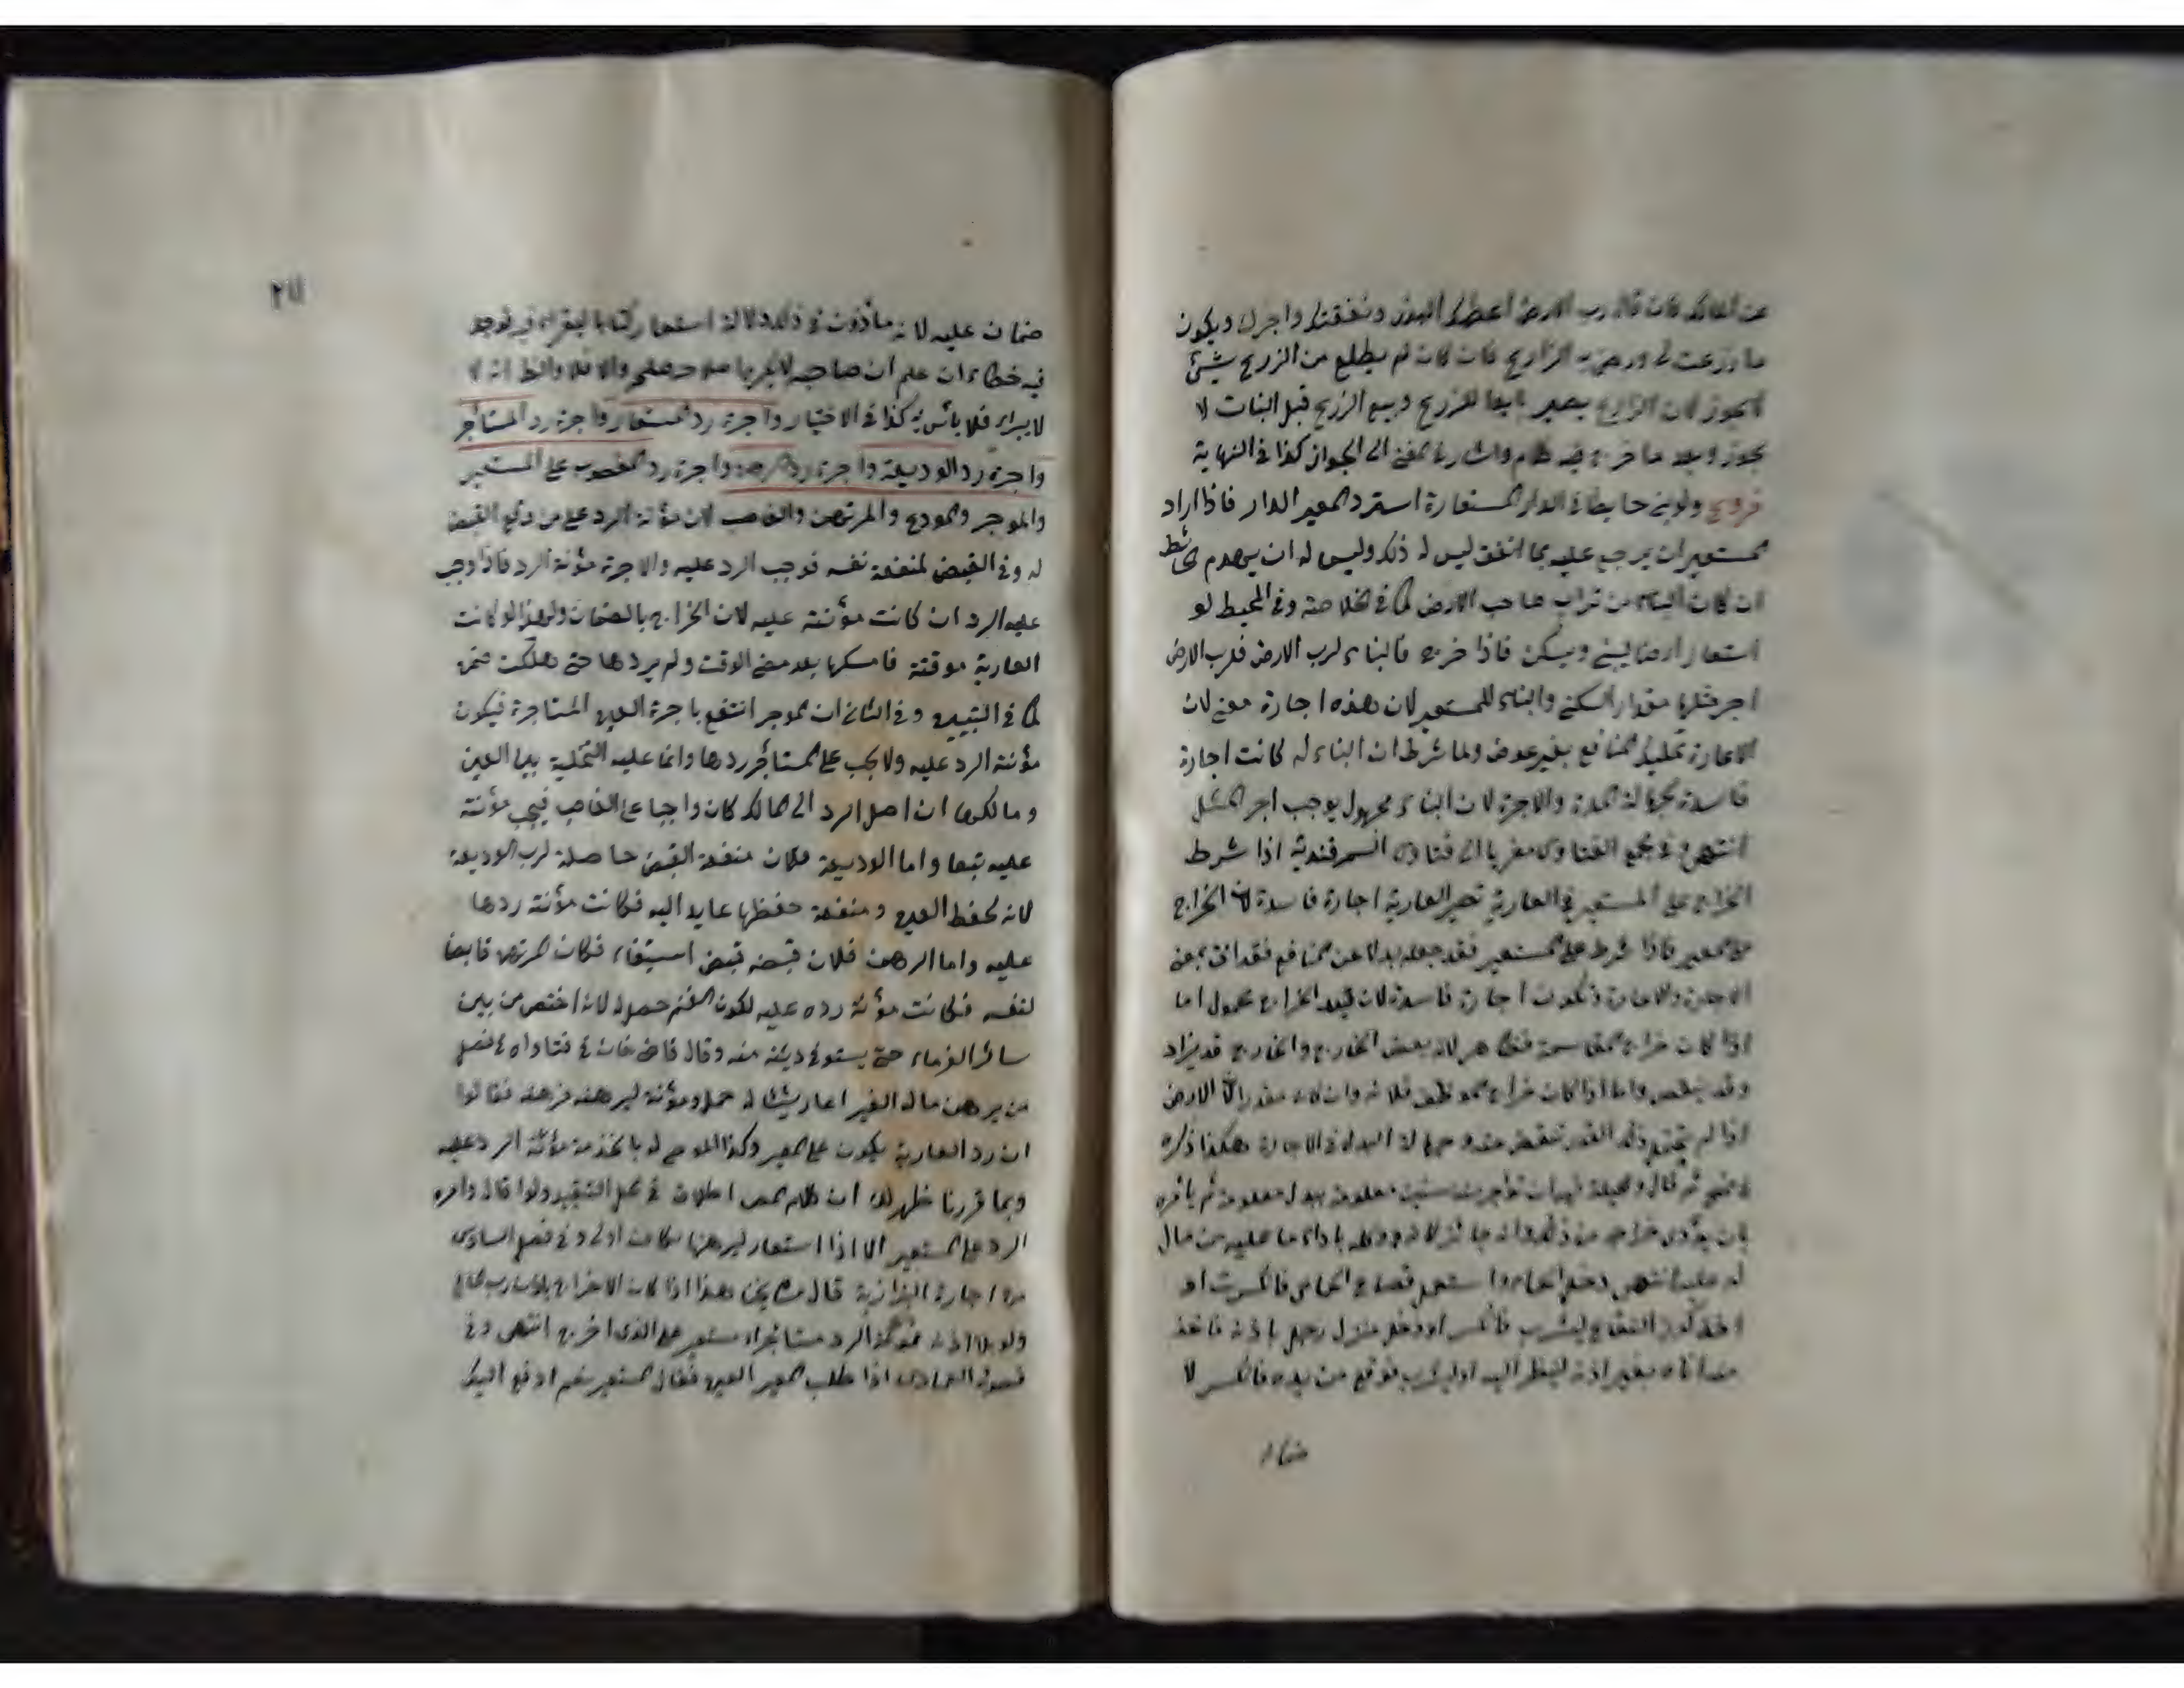 عن المالك فان قال رب الارض اعطيك البذر ونفقتك واجرك ويكون
ما زرعت لي ورضي به الزارع فان كان لم يطلع من الزرع شيئ
لايجوز لان الزارع يصير بايعا للزرع وبيع الزرع قبل النبات لا
يجوز وبعد ما خرج فيه كلام واشار في المغني الى الجواز كذا في النهاية
فروع ولو بنى حايطا في الدار المستعارة استرد المعير الدار فاذا اراد
المستعير ان يرجع عليه بما انفق ليس له ذلك وليس له ان يهدم الحائط
ان كان البناء من تراب صاحب الارض كما في الخلاصة وفي المحيط لو
استعار ارضا ليبني ويسكن فاذا خرج فالبناء لرب الارض فلرب الارض
اجر مثلها مقدار السكنى والبناء للمستعير لان هذه اجارة معنى لان
الاعارة تمليك المنافع بغير عوض ولما شرط ان البناء له كانت اجارة
فاسدة لجهالة المدة والاجرة لان البناء مجهول يوجب اجر المثل
انتهى وفي مجمع الفتاوى معزيا الى فتاوى السمرقندية اذا شرط
الخراج على المستعير في العارية تصير العارية اجارة فاسدة لان الخراج
على المعير فاذا شرط على المستعير فقد جعله بدلا عن المنافع فقد اتى بمعنى
الاجارة والاعارة فتكون اجارة فاسدة لان قدر الخراج مجهول اما
اذا كان خراج المقاسمة فظاهر لانه بعض الخارج والخارج قد يزاد
وقد ينقص واما اذا كان خراج موظف فلانه وان كان مقدرا الا ان الارض
اذا لم تحتمل ذلك القدر ينقص منه وجهالة البدل في الاجارة هكذا ذكره
ثم قال والحيلة ان تؤاجر منه سنين معلومة ببدل معلوم ثم يامره
بان يؤدي خراجه من ذلك وانه جائز لانه وكله باداء ما عليه من مال
له عليه انتهى دخل الحمام واستعمل قصاع الحمامي فانكسرت او
اخذ كوز الفقاع ليشرب فانكسر او دخل منزل رجل باذنه فاخذ
منه اناء بغير اذنه لينظر اليه او ليشرب فوقع من يده فانكسر لا
ضمان
ضمان عليه لانه ماذون في ذلك دلالة استعار كتابا ليقرا فيه فوجد
فيه خطاء ان علم ان صاحبه لا يكره اصلاحه اصلحه والا فلا
لا يبراء فلا بأس به كذا في الاختيار واجرة رد المستعار واجرة رد المستأجر
واجرة رد الوديعة واجرة رد الرهن واجرة رد المغصوب على المستعير
والموجر والمودع والمرتهن والغاصب لان مؤنة الرد على من وقع القبض
له وفي القبض لمنفعة نفسه فوجب الرد عليه والاجرة مؤنة الرد فاذا وجب
عليه الرد ان كانت مؤنته عليه لان الخراج بالضمان ولهذا لو كانت
العارية موقتة فامسكها بعد مضي الوقت ولم يردها حتى هلكت ضمن
كما في التبيين وفي الثاني ان الموجر انتفع باجرة العين المستاجرة فيكون
مؤنة الرد عليه ولا يجب على المستأجر ردها وانما عليه التخلية بين العين
ومالكها ان اصل الرد الى المالك كان واجبا على الغاصب فيجب مؤنته
عليه تبعا واما الوديعة فلان منفعة القبض حاصلة لرب الوديعة
لانه لحفظ العين ومنفعة حفظها عايد اليه فكانت مؤنة ردها
عليه واما الرهن فلان قبضه قبض استيفاء فكان المرتهن قابضا
لنفسه فكانت مؤنة رده عليه لكون الغنم حصل له لانه اختص من بين
سائر الغرماء حتى يستوفي دينه منه وقال قاضي خان في فتاواه في فصل
من يرهن مال الغير اعار شيئا له حمل ومؤنة ليرهنه فرهنه فقالوا
ان رد العارية يكون على المعير وكذا الموصى له بالخدمة مؤنة الرد عليه
وبما قررنا ظهر لك ان كلام المص اطلاق في محل التقييد ولو قال واجرة
الرد على المستعير الا اذا استعار ليرهنها لكان اولى وفي فصل السادس
من اجارة البزازية قال مشايخنا هذا اذا كان الاخراج باذن رب المال
ولو بلا اذنه فمؤنة الرد مستأجرا او مستعيرا على الذي اخرج انتهى وفي
فصول العمادي اذا طلب المعير العين فقال المستعير نعم ادفع اليك